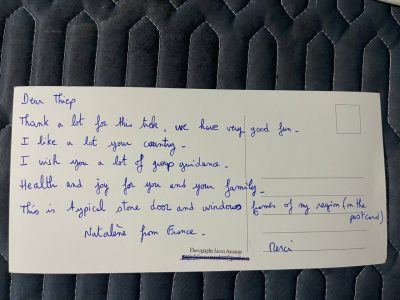 Dear Thiep
Thank a lot for this trek, we have very good fun.
I like a lot your country.
I wish you a lot of group guidance.
Health and joy for you end your family.
This is typical stone door and windows fames of my region (on the postcard)
Natalène from France.
Merci
Photographe Lionel